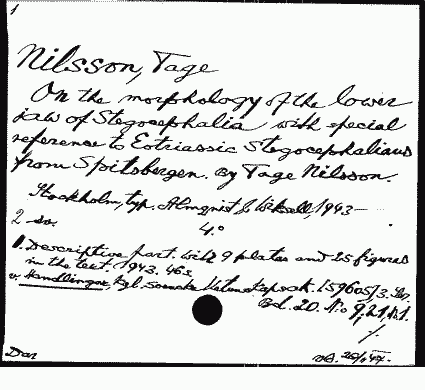 1
Nilsson, Tage
On the morphology of the lower
jaw of Stegocephalia with special
reference to Eotriassic Stegocephalians
from Spitsbergen. By Tage Nilsson.
Stockholm, typ. Almqvist & Wiksell, 1943—
2 4.°
1. Descriptive part. With 9 plates and 25 figures
in the text. 1943. 46 s.
v. Handlingar, Kgl. Svenska Vetenskapsak. 3. Ser.
Bd. 20. No 9,